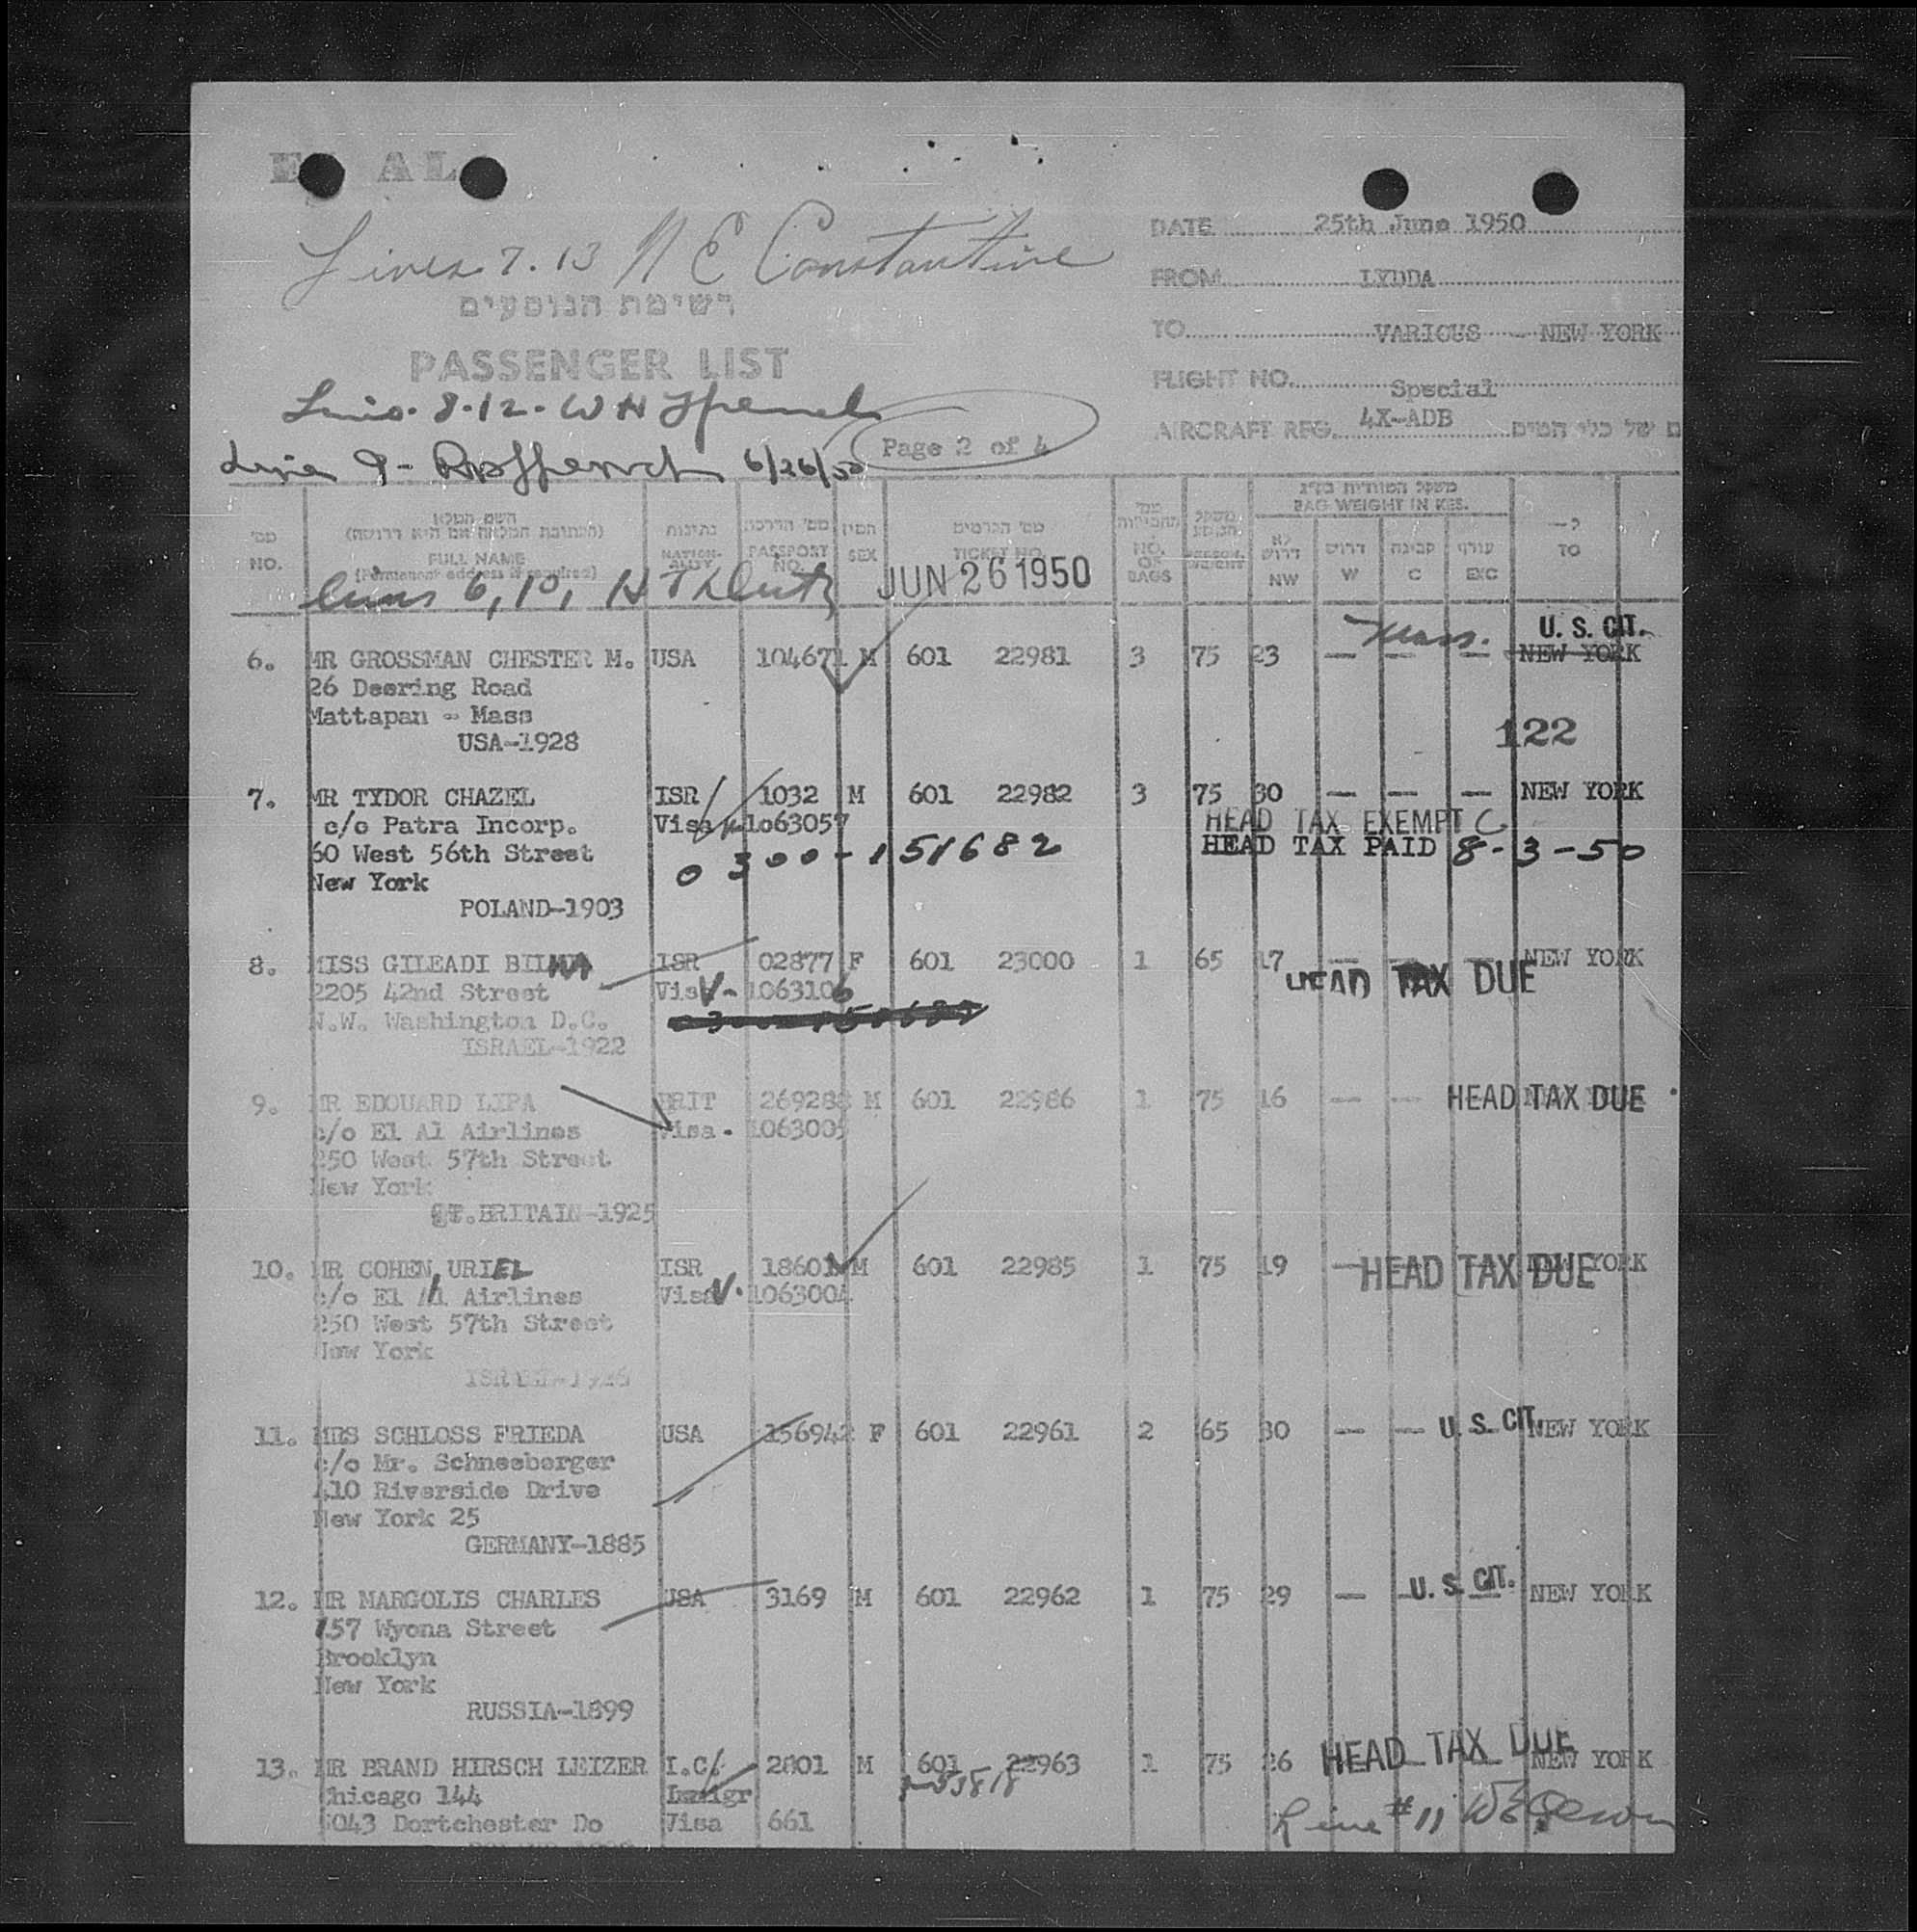 EL AL
Lines 7.13 N E Constantine
רשימת הנוסעים
PASSENGER LIST
8-12- W H
Line 9- 6/26/50
DATE 25th June 1950
FROM LYDDA
TO VARIOUS - NEW YORK
FLIGHT NO. Special
AIRCRAFT REG. 4X-ADB
Page 2 of 4
מס' NO.
השם המלא
(הכתובת המלאה אם היא דרושה)
FULL NAME
(Permanent address if required)
נתינות NATIONALITY
מס' הדרכון PASSPORT NO.
המין SEX
מס' הכרטיס TICKET NO.
NO. OF BAGS
PERSON. WEIGHT
BAG WEIGHT IN KGS.
לא דרוש NW
דרוש W
קבינה C
עודף EXC
ל— TO
Lines 6, 10, H T
JUN 26 1950
Mass. U. S. CIT.
6. MR GROSSMAN CHESTER M. USA 104671 M 601 22981 3 75 23 — — — NEW YORK
26 Deering Road
Mattapan - Mass
USA-1928
122
7. MR TYDOR CHAZEL ISR 1032 M 601 22982 3 75 30 — — — NEW YORK
c/o Patra Incorp. Visa 1063057 HEAD TAX EXEMPT C
60 West 56th Street 0300-151682 HEAD TAX PAID 8-3-50
New York
POLAND-1903
8. MISS GILEADI ISR 02877 F 601 23000 1 65 17 — — — NEW YORK
2205 42nd Street Visa V- 1063106 HEAD TAX DUE
N.W. Washington D.C.
ISRAEL-1922
9. MR EDOUARD LIPA BRIT 269288 M 601 22986 1 75 16 — — HEAD TAX DUE
c/o El Al Airlines Visa - 1063005
250 West 57th Street
New York
GT.BRITAIN-1925
10. MR COHEN, URIEL ISR 18601 M 601 22985 1 75 19 — HEAD TAX DUE NEW YORK
c/o El Al Airlines Visa V. 1063004
250 West 57th Street
New York
ISRAEL-1926
11. MRS SCHLOSS FRIEDA USA 156942 F 601 22961 2 65 30 — — U. S. CIT. NEW YORK
c/o Mr. Schneeberger
410 Riverside Drive
New York 25
GERMANY-1885
12. MR MARGOLIS CHARLES USA 3169 M 601 22962 1 75 29 — U. S. CIT. NEW YORK
157 Wyona Street
Brooklyn
New York
RUSSIA-1899
13. MR BRAND HIRSCH LEIZER I.C. 2801 M 601 22963 1 75 26 HEAD TAX DUE NEW YORK
Chicago 144 Immigr
5043 Dortchester Do Visa 661
Line #11